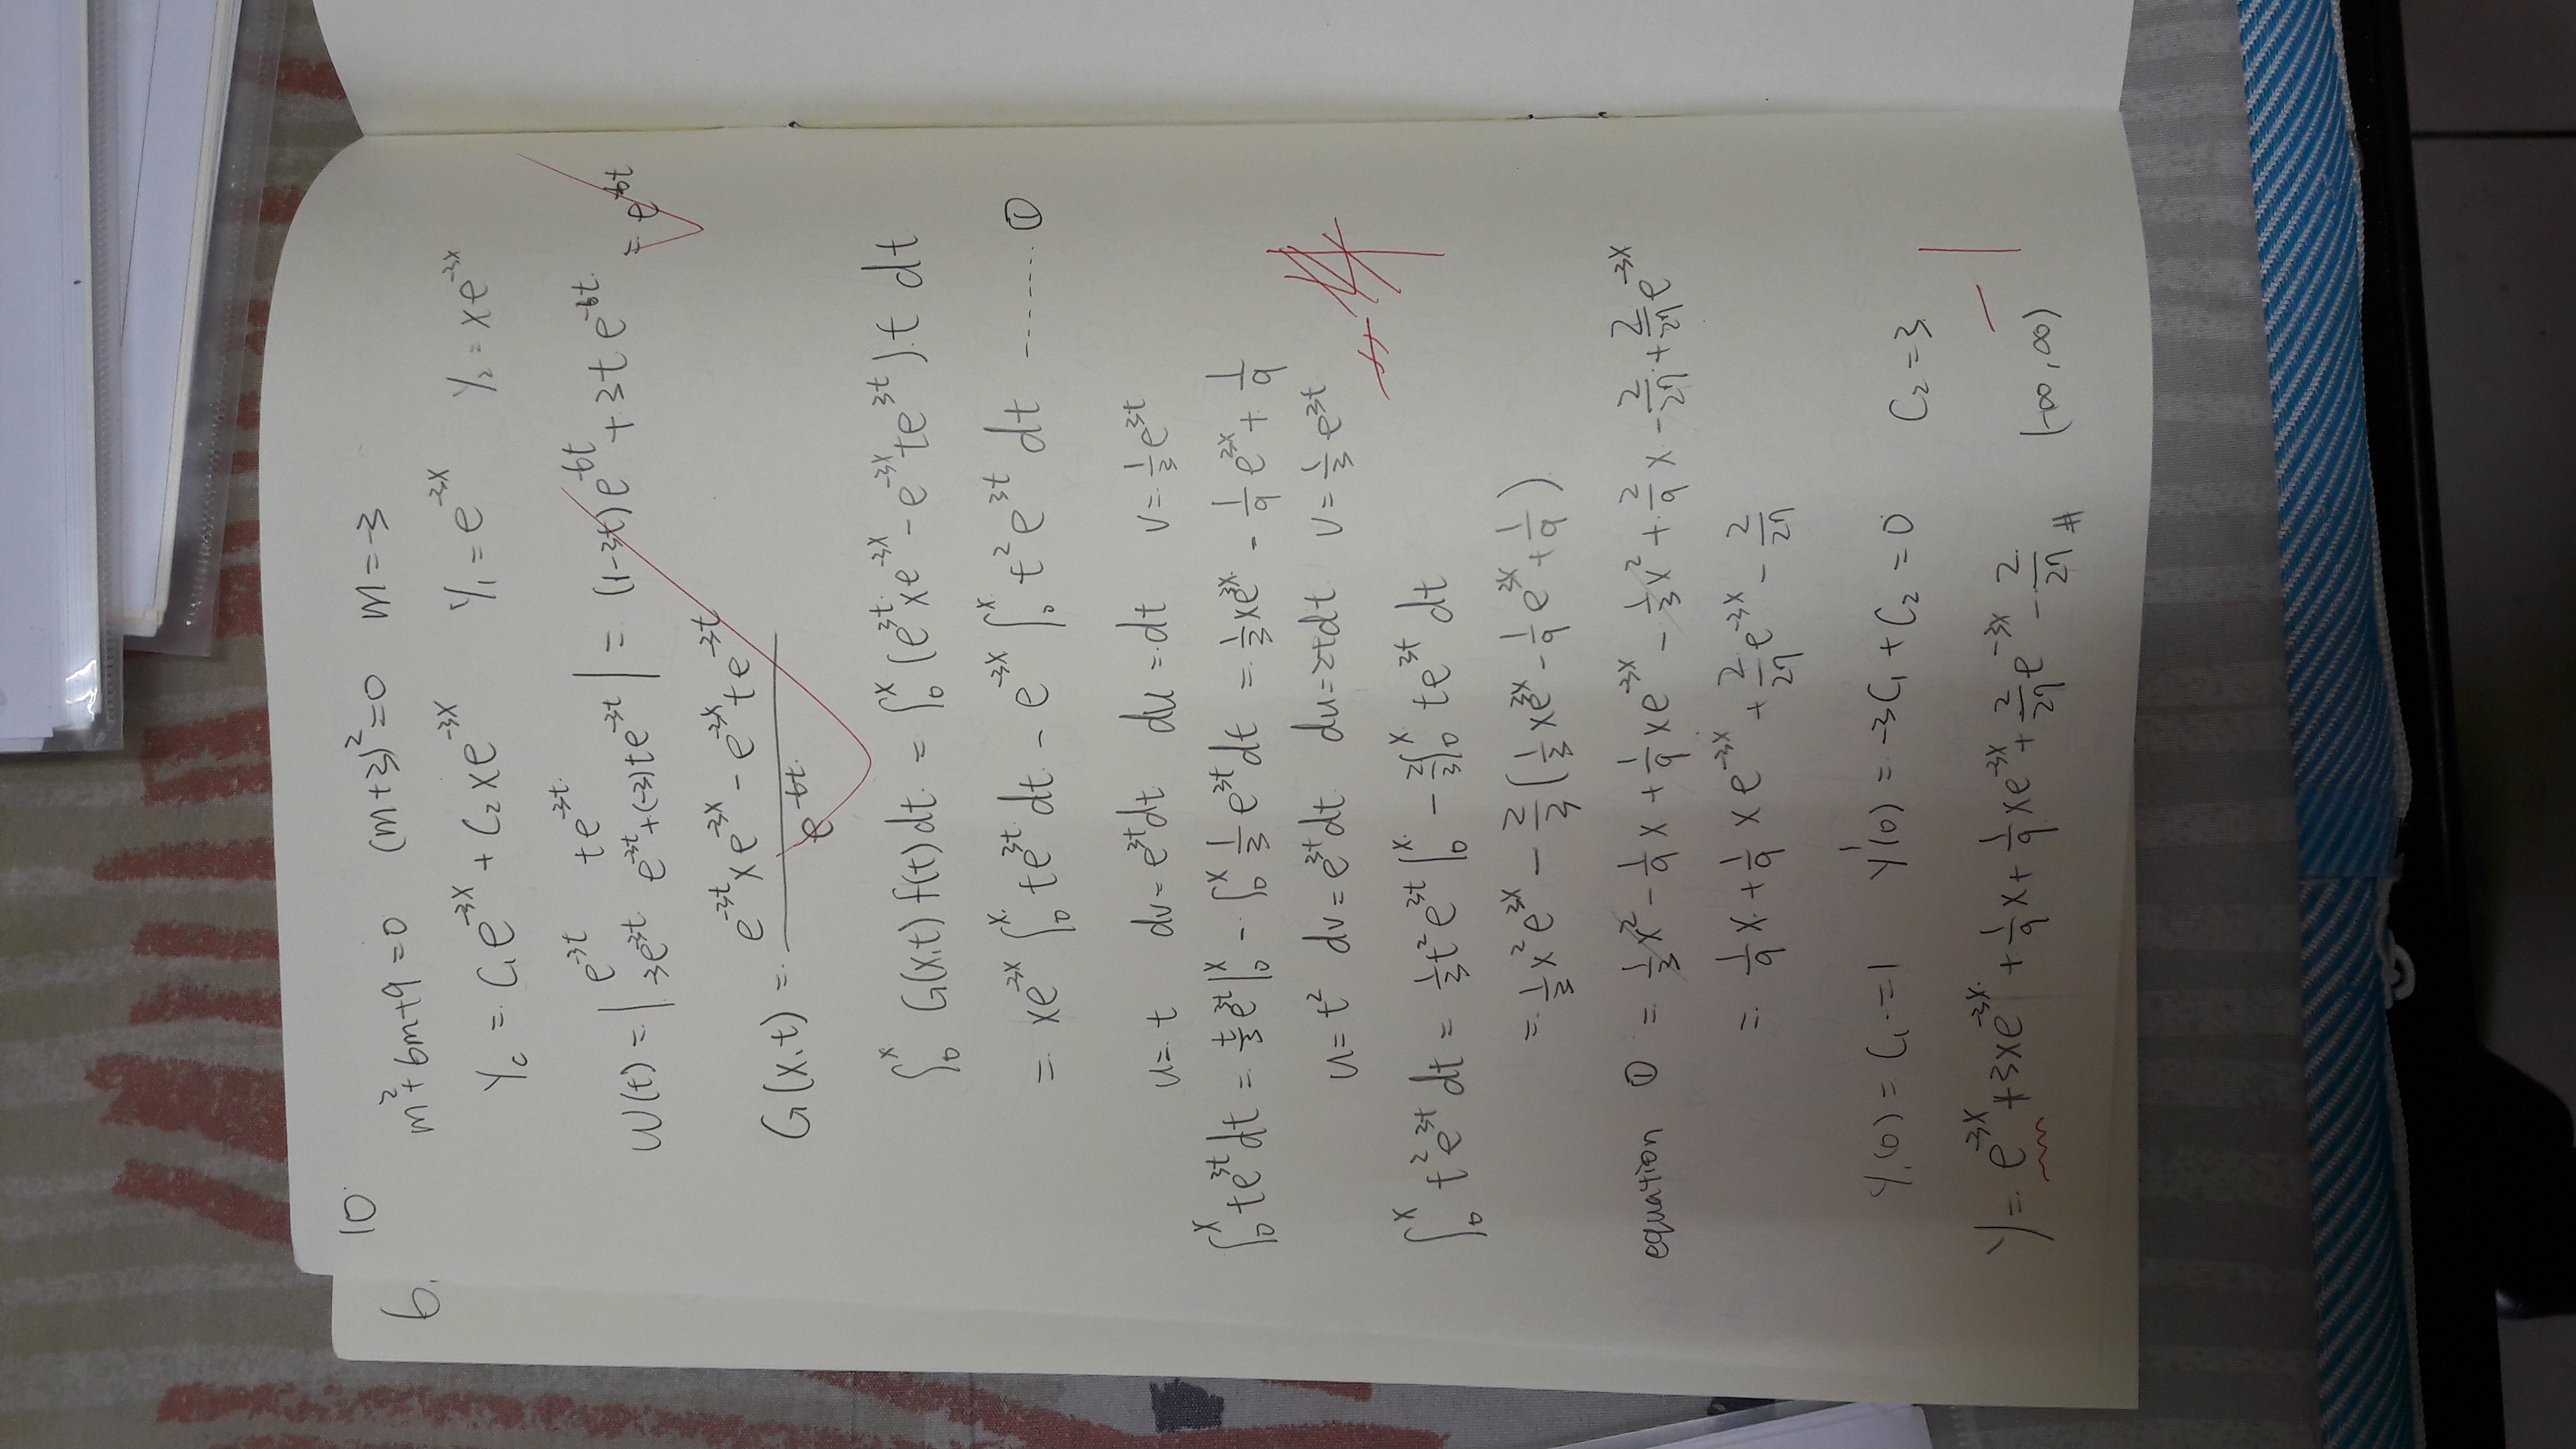 10.
6. m²+6m+9=0 (m+3)²=0 m=-3
Yc = C₁e^-3x + C₂xe^-3x Y₁=e^-3x Y₂=xe^-3x
W(t) = | e^-3t te^-3t ; -3e^-3t e^-3t+(-3)te^-3t | = (1-3t)e^-6t + 3te^-6t = e^-6t
G(x,t) = (e^-3t xe^-3x - e^-3x te^-3t) / e^-6t
∫₀ˣ G(x,t) f(t)dt = ∫₀ˣ (e^3t xe^-3x - e^-3x te^3t)·t dt
= xe^-3x ∫₀ˣ te^3t dt - e^-3x ∫₀ˣ t²e^3t dt ------- ①
u=t dv=e^3t dt du=dt v=1/3 e^3t
∫₀ˣ te^3t dt = t/3 e^3t |₀ˣ - ∫₀ˣ 1/3 e^3t dt = 1/3 xe^3x - 1/9 e^3x + 1/9
u=t² dv=e^3t dt du=2tdt v=1/3 e^3t
∫₀ˣ t²e^3t dt = 1/3 t²e^3t |₀ˣ - 2/3 ∫₀ˣ te^3t dt
= 1/3 x²e^3x - 2/3 (1/3 xe^3x - 1/9 e^3x + 1/9)
equation ① = 1/3 x² - 1/9 x + 1/9 xe^-3x - 1/3 x² + 2/9 x - 2/27 + 2/27 e^-3x
= 1/9 x + 1/9 xe^-3x + 2/27 e^-3x - 2/27
Y(0) = C₁ = 1 Y'(0) = -3C₁ + C₂ = 0 C₂ = 3
-1
Y = e^-3x + 3xe^-3x + 1/9 x + 1/9 xe^-3x + 2/27 e^-3x - 2/27 # (-∞,∞)